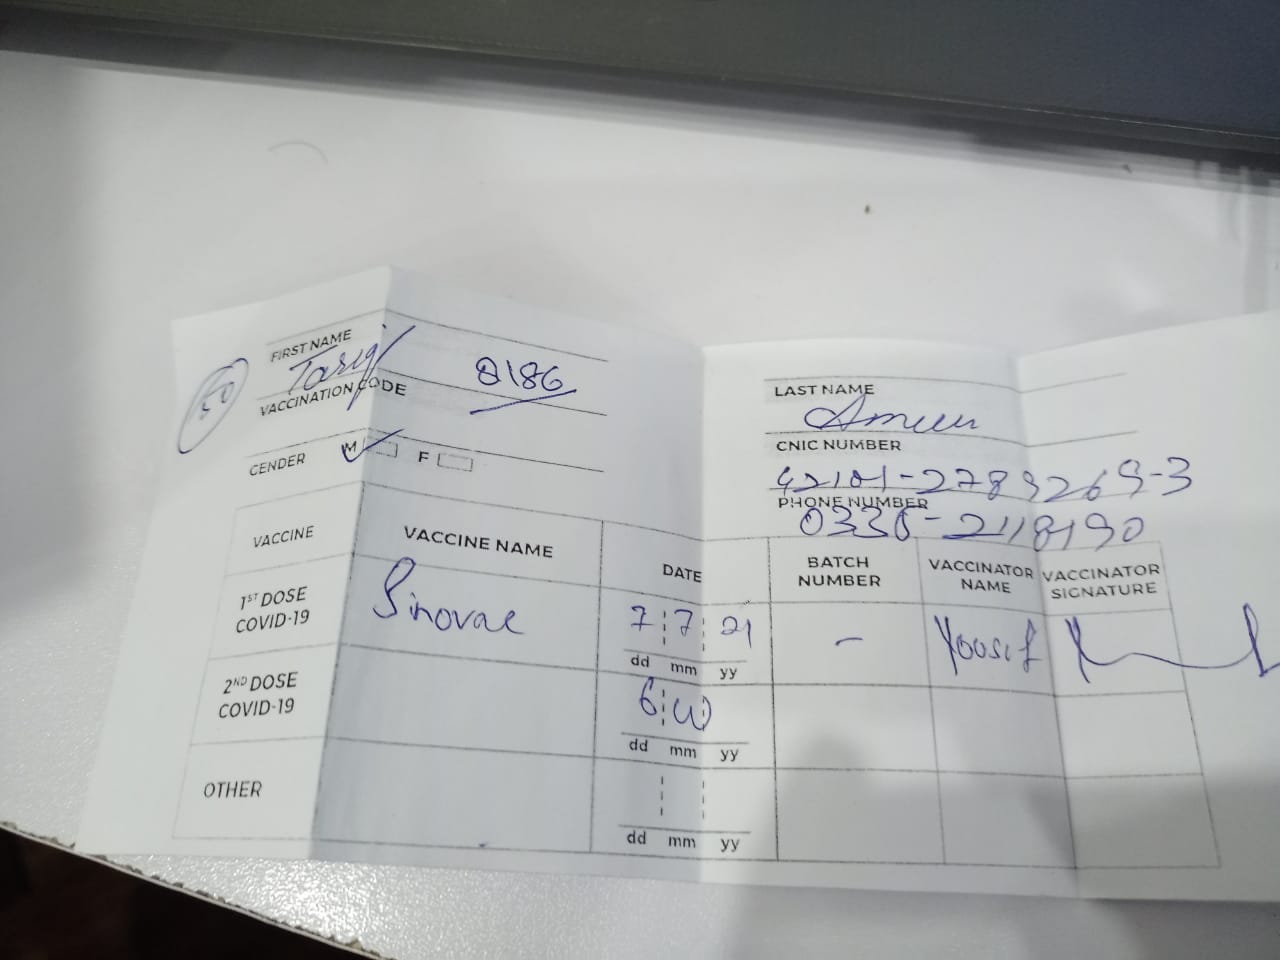 FIRST NAME
Tariq
50
VACCINATION CODE 8186
GENDER M F
LAST NAME
Ameen
CNIC NUMBER
42101-2789269-3
PHONE NUMBER
0336-2118190
VACCINE VACCINE NAME DATE BATCH NUMBER VACCINATOR NAME VACCINATOR SIGNATURE
1ST DOSE COVID-19 Sinovac 7 7 21 - Yousif
dd mm yy
2ND DOSE COVID-19 6
dd mm yy
OTHER
dd mm yy